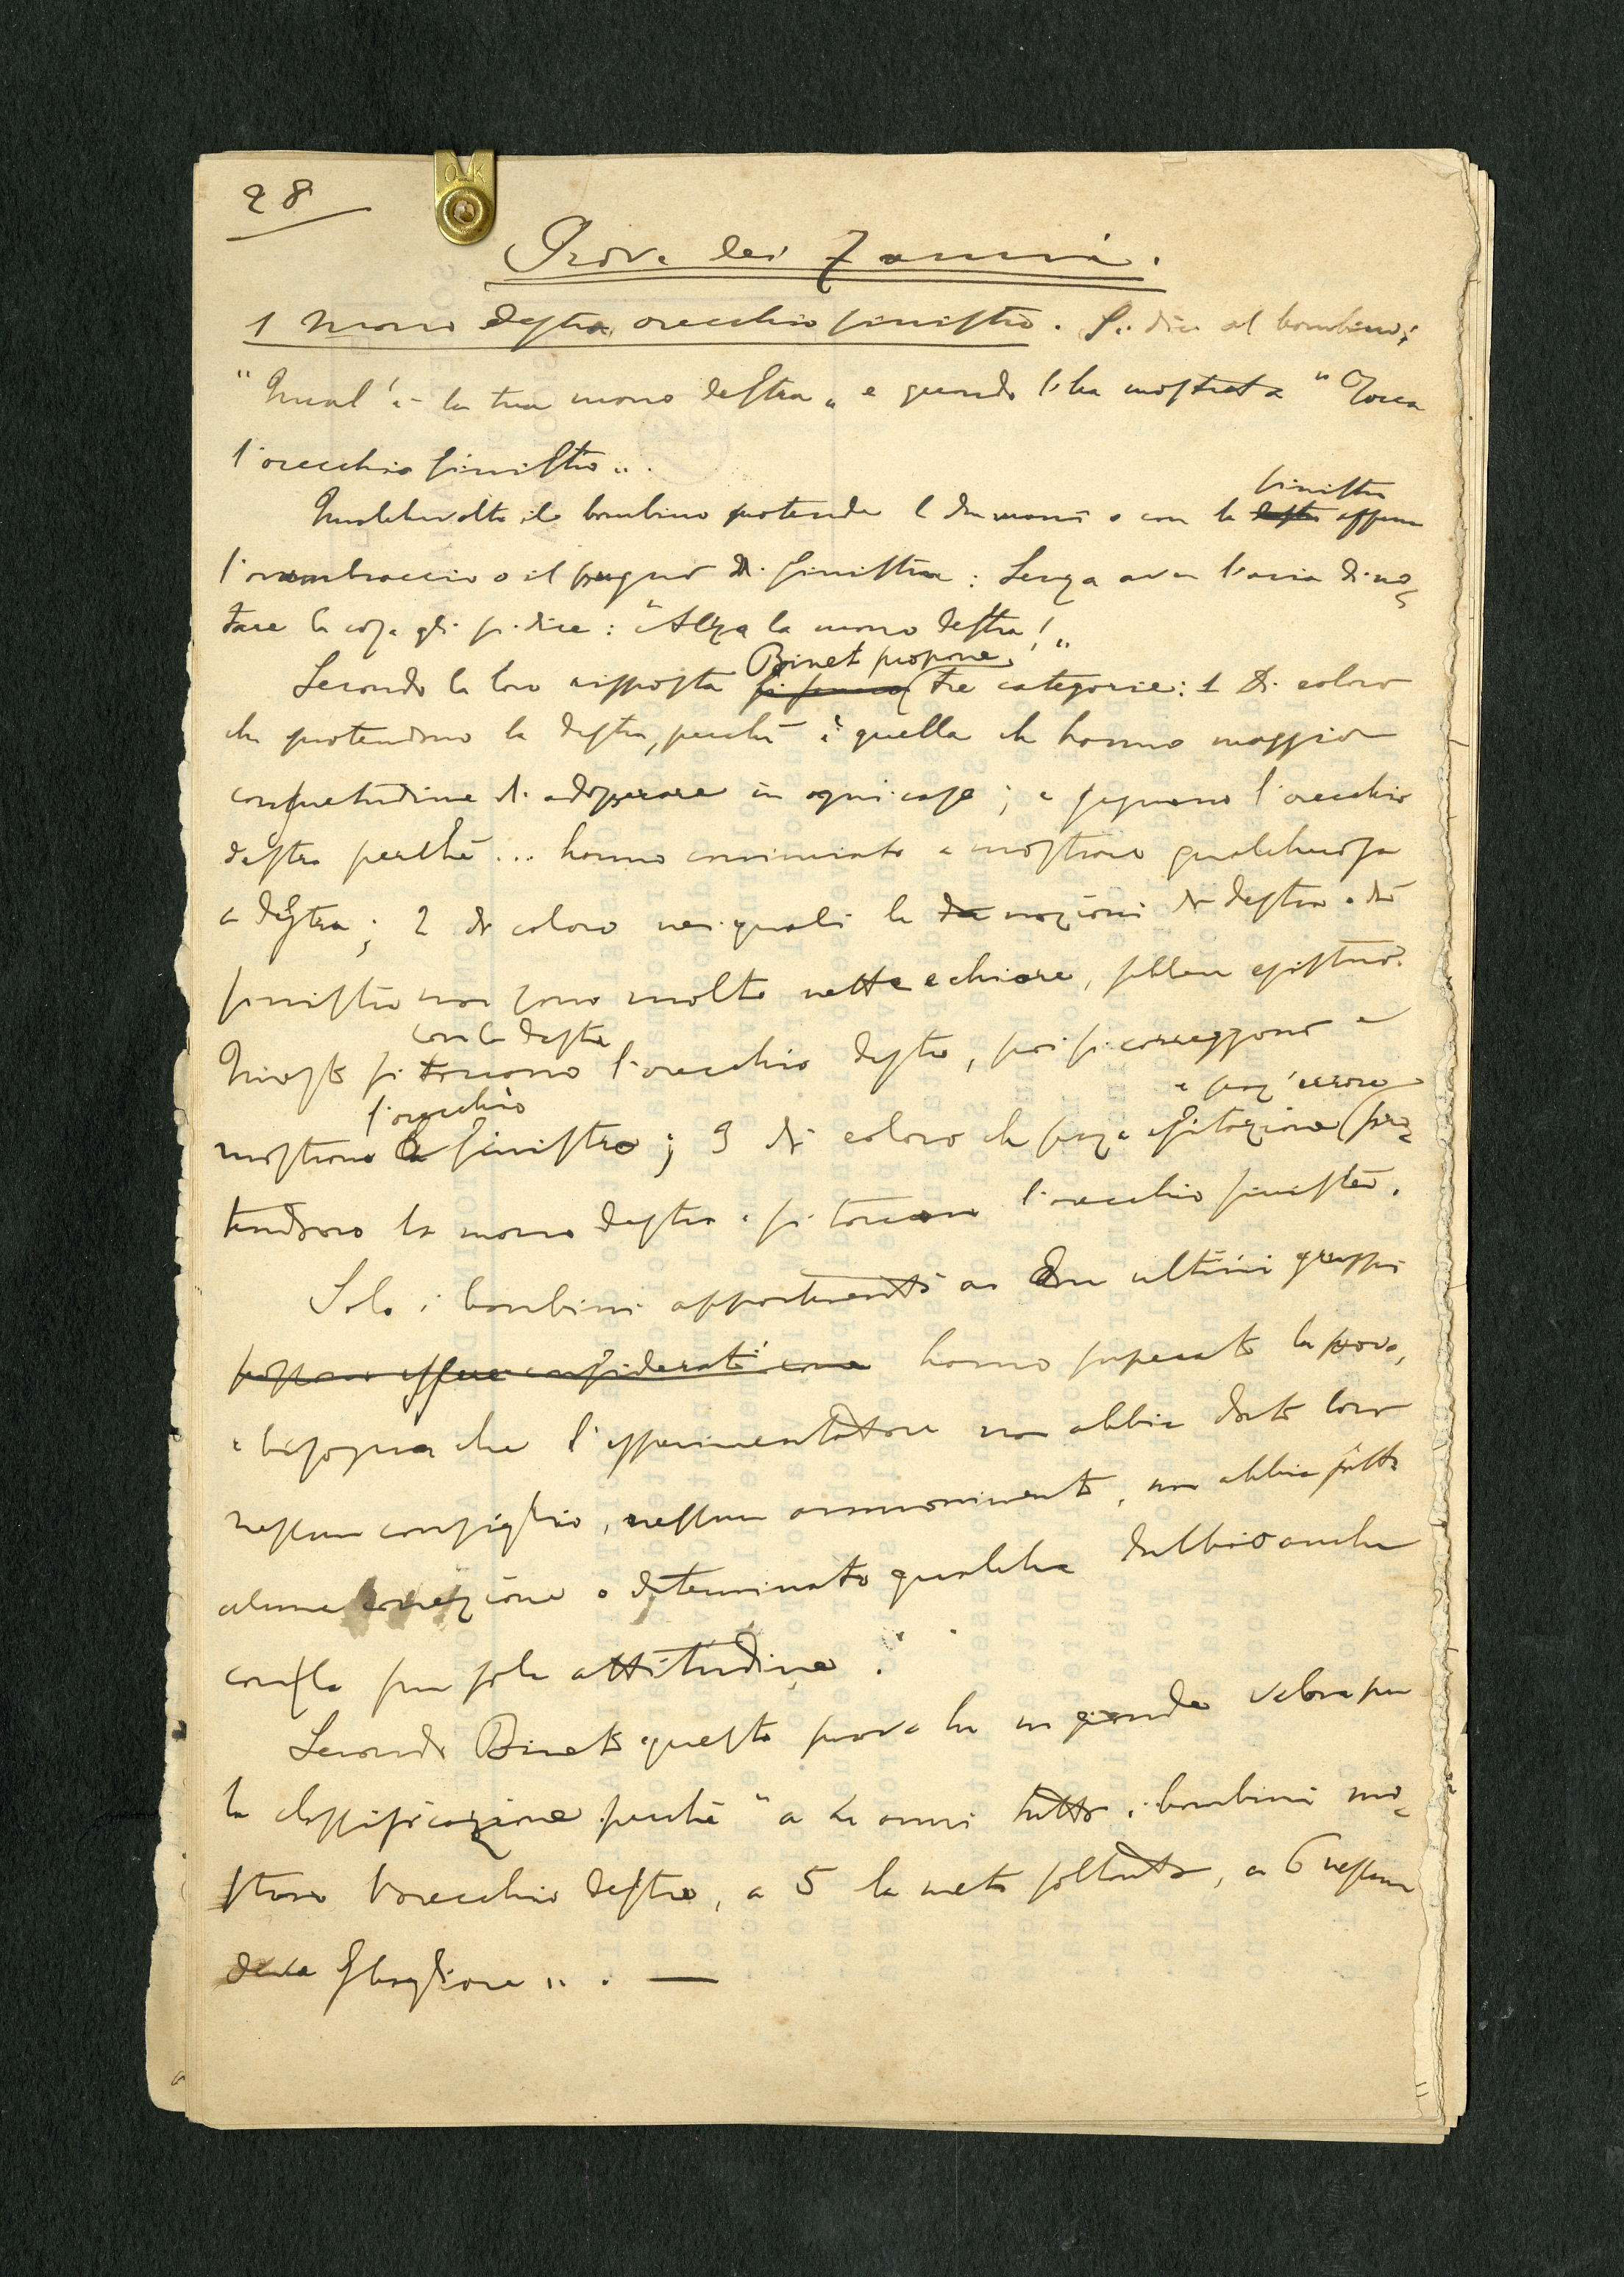 28
Prove dei 7 anni.
1 Mano destra, orecchio sinistro. Si dice al bambino:
"Qual'è la tua mano destra" e quando l'ha mostrata "Tocca
l'orecchio sinistro".
sinistra
Qualchevolta il bambino protende le due mani o con la destra afferra
l'avambraccio o il pugno di sinistra: Senza aver l'aria di no-
tare la cosa gli si dice: "Alza la mano destra!"
Binet propone
Secondo la loro risposta si fanno tre categorie: 1 Di coloro
che protendono la destra, perché è quella che hanno maggior
consuetudine di adoperare in ogni caso; e segnano l'orecchio
destro perché... hanno cominciato a mostrare qualchecosa
a destra; 2 di coloro nei quali le due nozioni di destra e di
sinistra non sono molto nette e chiare, sebben esistano.
con la destra
Questi si toccano l'orecchio destro, poi si correggono e
e senz'errore
l'orecchio
mostrano la sinistro; 3 di coloro che senza esitazione pro-
tendono la mano destra e si toccano l'orecchio sinistro.
Solo i bambini appartenenti ai due ultimi gruppi
possono essere considerati come hanno superato la prova,
e bisogna che l'esperimentatore non abbia dato loro
nessun consiglio, nessun ammonimento, non abbia fatto
alcuna correzione o determinato qualche dubbio anche
con la sua sola attitudine.
Secondo Binet questa prova ha un grande valore per
la classificazione perché "a 4 anni tutti i bambini mo-
strano l'orecchio destro, a 5 la metà soltanto, a 6 nessuno
deve sbagliare". —